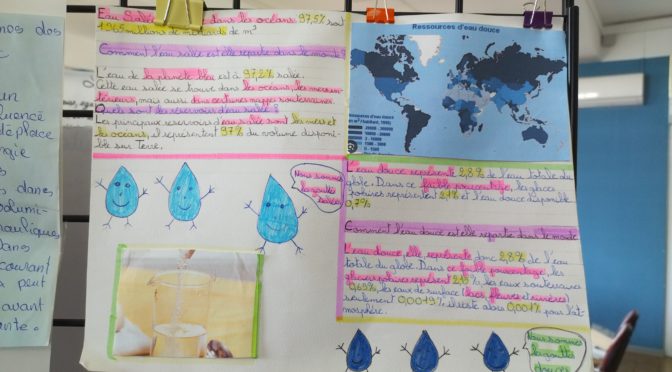 Eau Salée dans les océans 97,5% soit
1 365 millions de milliards de m³
Comment l'eau salée est elle repartie dans le monde?
L'eau de la planète bleu est à 97,2% salée.
Cette eau salée se trouve dans les océans, les mers in-
térieures, mais aussi dans certaines nappes souterraines.
Quels sont les réservoirs d'eau salée?
Les principaux réservoirs d'eau salée sont les mers et
les océans, il représentent 97% du volume disponi-
ble sur Terre.
Nous sommes
la goutte
salée
Ressources d'eau douce
L'eau douce représente 2,8% de l'eau totale du
globe. Dans ce faible pourcentage, les glaces
polaires représentent 2,1% et l'eau douce disponible
0,7%
Comment l'eau douce est elle repartie dans le monde
L'eau douce, elle, représente donc 2,8% de l'eau
totale du globe. Dans ce faible pourcentage, les
glaciers polaires représentent 2,15% les eaux souterraines
0,63%, les eaux de surface (lacs, fleuves et rivières)
seulement 0,0019%, il reste alors 0,001% pour l'at-
mosphère.
Nous sommes
la goutte
douces
nos dos
un
place
gie
dans
volumi-
auliques
Dans
courant
peut
avant